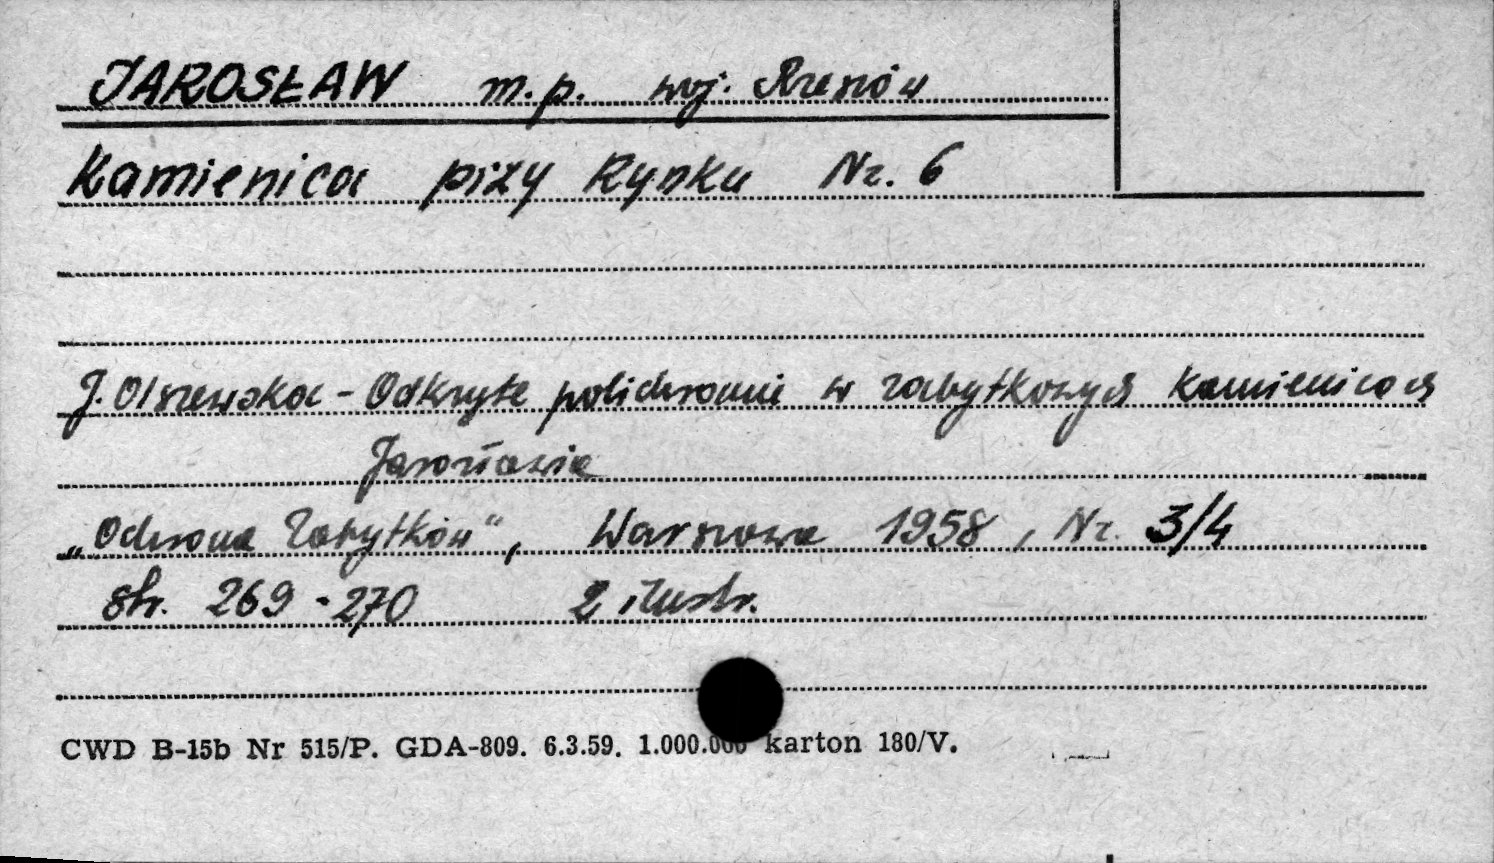 JAROSŁAW m.p. woj. Rzeszów
Kamienica przy Rynku Nr. 6
J. Olszewska - Odkryte polichromie w zabytkowych kamienicach
Jarosławia
„Ochrona Zabytków", Warszawa 1958, Nr. 3/4
str. 269-270 2 ilustr.
CWD B-15b Nr 515/P. GDA-809. 6.3.59. 1.000.000 karton 180/V.